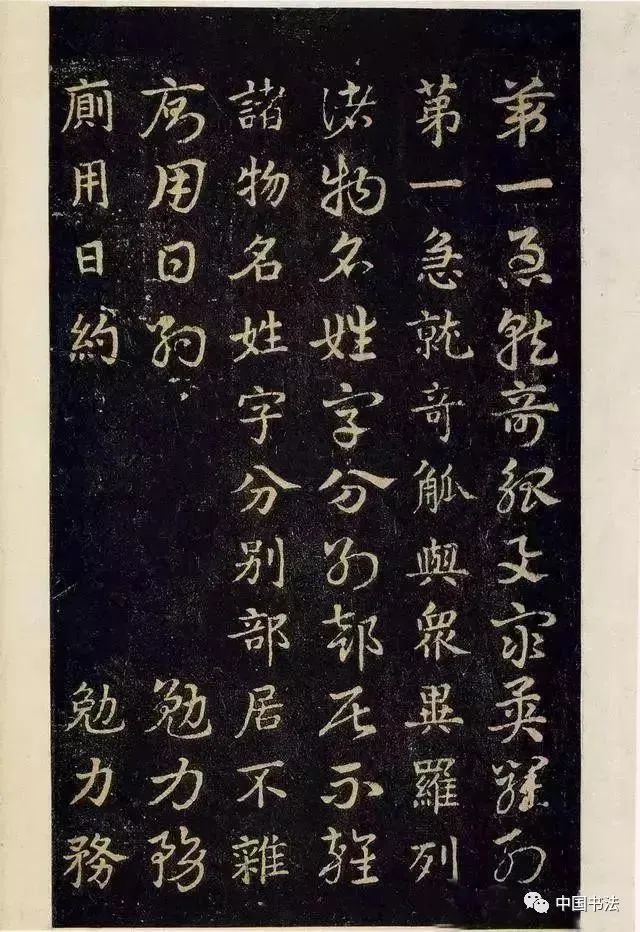 第一急就奇觚與衆異羅列
第一急就奇觚與衆異羅列
諸物名姓字分别部居不雜
諸物名姓字分别部居不雜
廁用日約 勉力務
廁用日約 勉力務
中国书法